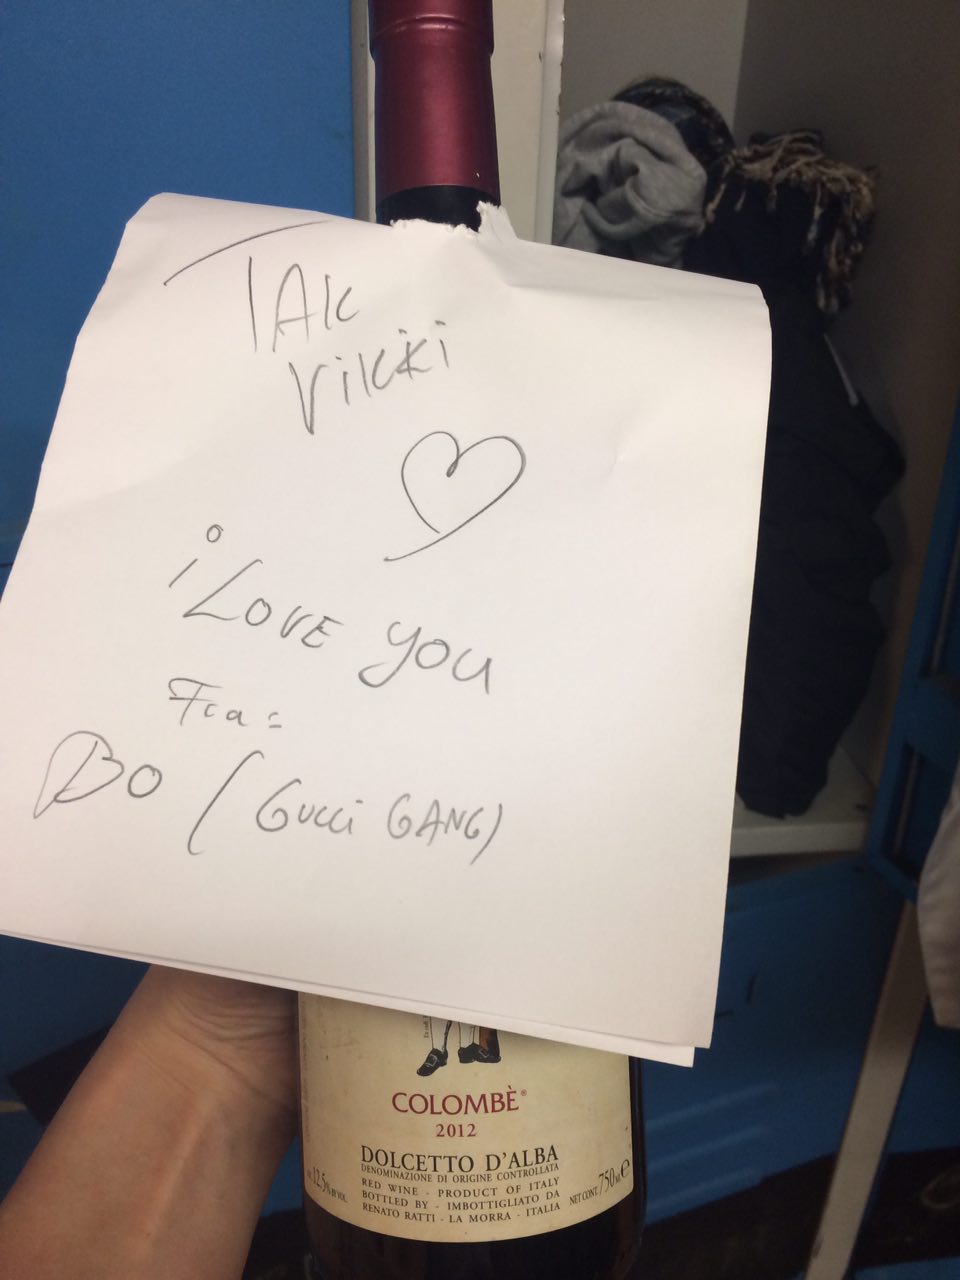 TAK
Vikki
i LOVE YOU
Fra:
BO (GUCCi GANG)
COLOMBÈ®
2012
DOLCETTO D'ALBA
DENOMINAZIONE DI ORIGINE CONTROLLATA
RED WINE - PRODUCT OF ITALY
BOTTLED BY - IMBOTTIGLIATO DA
RENATO RATTI - LA MORRA - ITALIA
12.5% BY VOL.
NET CONT. 750 ML e